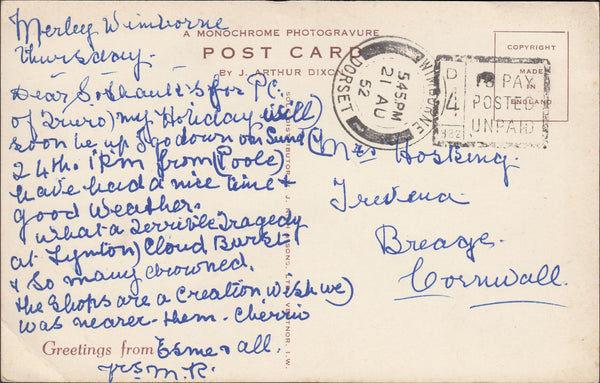 Merley Wimborne
Thursday.
A MONOCHROME PHOTOGRAVURE
POST CARD
BY J. ARTHUR DIXON
COPYRIGHT
MADE
IN
ENGLAND
WIMBORNE
545 PM
21 AU
52
DORSET
D
4
TO PAY
POSTED
UNPAID
Dear S. Thanks for P.C.
of Truro) my Holiday will)
soon be up I go down on Sund (
24th. 1 P.M from (Poole)
have had a nice time &
good weather.
What a Terrible Tragedy
at Lynton) Cloud Burst
& So many drowned.
the Shops are a Creation Wish we)
was nearer - them - Cheerio
Greetings from Esme & all.
yrs M.R.
Mrs Hosking.
Trevena
Breage.
Cornwall.